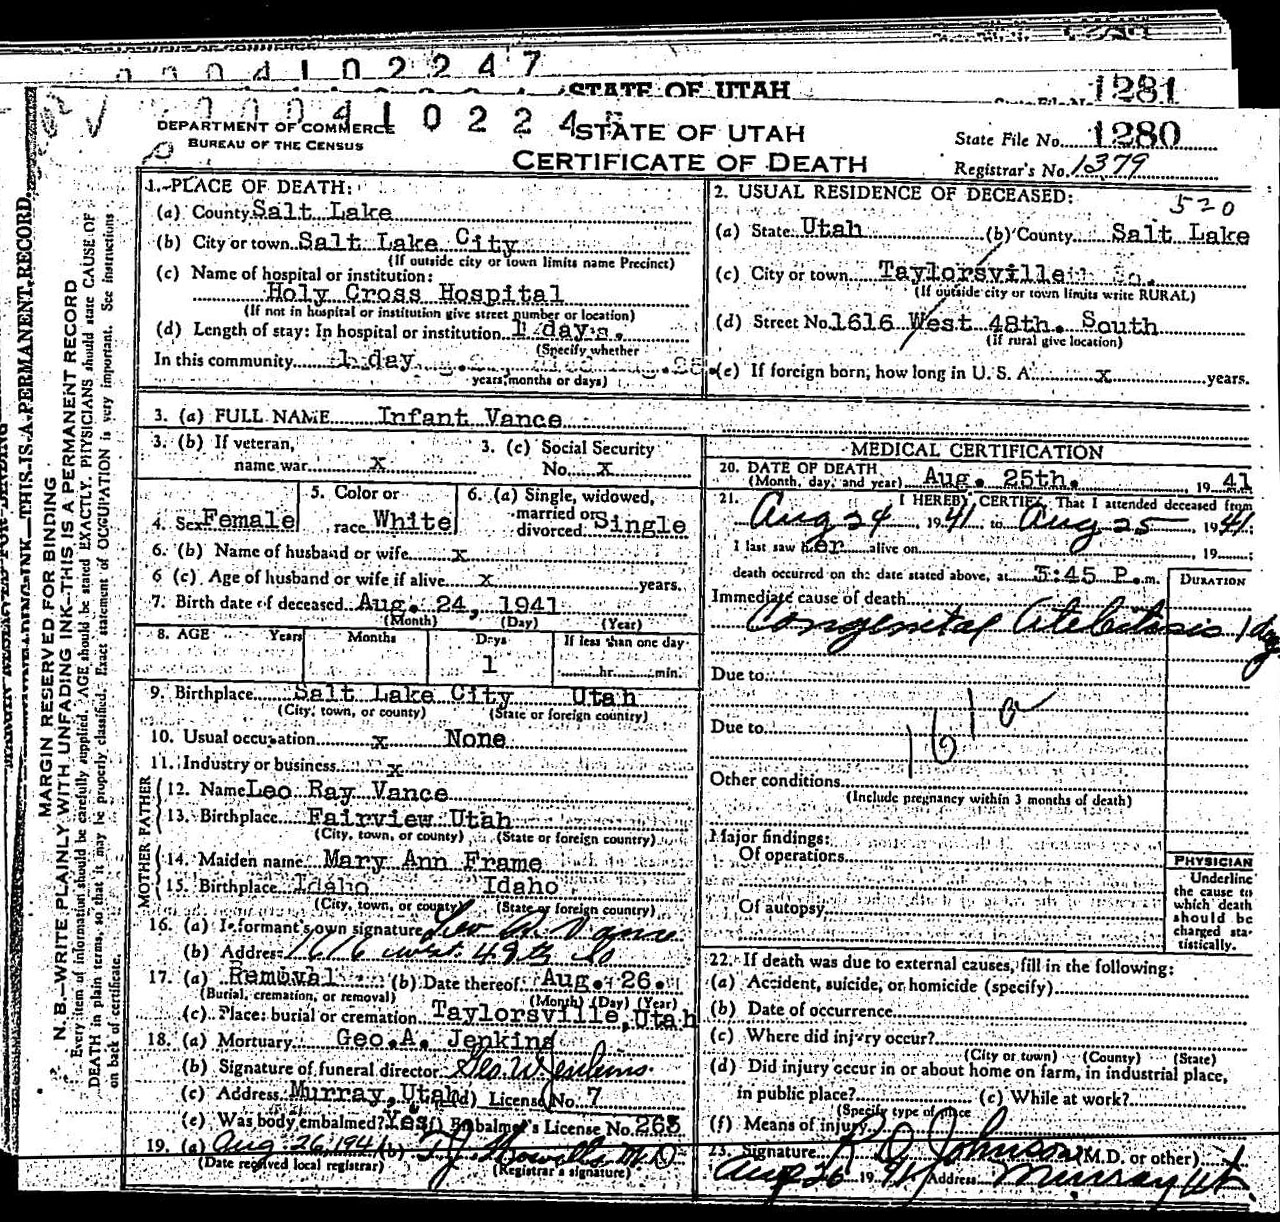 0004102247
STATE OF UTAH
1281
000410224
DEPARTMENT OF COMMERCE
BUREAU OF THE CENSUS
STATE OF UTAH
CERTIFICATE OF DEATH
State File No. 1280
Registrar's No. 1379
MARGIN RESERVED FOR BINDING
N. B.—WRITE PLAINLY WITH UNFADING INK—THIS IS A PERMANENT RECORD
Every item of information should be carefully supplied. AGE should be stated EXACTLY. PHYSICIANS should state CAUSE OF
DEATH in plain terms, so that it may be properly classified. Exact statement of OCCUPATION is very important. See instructions
on back of certificate.
1. PLACE OF DEATH:
(a) County Salt Lake
(b) City or town Salt Lake City
(If outside city or town limits name Precinct)
(c) Name of hospital or institution:
Holy Cross Hospital
(If not in hospital or institution give street number or location)
(d) Length of stay: In hospital or institution 1 days.
(Specify whether
In this community 1 day
years, months or days)
2. USUAL RESIDENCE OF DECEASED:
520
(a) State Utah (b) County Salt Lake
(c) City or town Taylorsville
(If outside city or town limits write RURAL)
(d) Street No. 1616 West 48th. South
(If rural give location)
(e) If foreign born, how long in U. S. A. x years.
3. (a) FULL NAME Infant Vance
3. (b) If veteran,
name war x
3. (c) Social Security
No. x
4. Sex Female
5. Color or
race White
6. (a) Single, widowed,
married or
divorced Single
6. (b) Name of husband or wife x
6 (c) Age of husband or wife if alive x years.
7. Birth date of deceased Aug. 24, 1941
(Month) (Day) (Year)
8. AGE Years Months Days If less than one day
1 hr. min.
9. Birthplace Salt Lake City Utah
(City, town, or county) (State or foreign country)
10. Usual occupation x None
11. Industry or business x
FATHER
12. Name Leo Ray Vance
13. Birthplace Fairview Utah
(City, town, or county) (State or foreign country)
MOTHER
14. Maiden name Mary Ann Frame
15. Birthplace Idaho Idaho
(City, town, or county) (State or foreign country)
16. (a) Informant's own signature Leo Vance
(b) Address 1616 West 48th So
17. (a) Removal (b) Date thereof Aug. 26.
(Burial, cremation, or removal) (Month) (Day) (Year)
(c) Place: burial or cremation Taylorsville, Utah
18. (a) Mortuary Geo. A. Jenkins
(b) Signature of funeral director Geo. W Jenkins
(c) Address Murray, Utah (d) License No. 7
(e) Was body embalmed? Yes (f) Embalmer's License No. 263
19. (a) Aug 26, 1941 (b) T J Howells M.D.
(Date received local registrar) (Registrar's signature)
MEDICAL CERTIFICATION
20. DATE OF DEATH
(Month, day, and year) Aug. 25th. 19 41
21. I HEREBY CERTIFY, That I attended deceased from
Aug 24 19 41 to Aug 25 19 41
I last saw her alive on , 19 ;
death occurred on the date stated above, at 5:45 P. m.
DURATION
Immediate cause of death
Congenital Atelectasis 1 day
Due to
161 a
Due to
Other conditions
(Include pregnancy within 3 months of death)
Major findings:
Of operations
Of autopsy
PHYSICIAN
Underline
the cause to
which death
should be
charged sta-
tistically.
22. If death was due to external causes, fill in the following:
(a) Accident, suicide, or homicide (specify)
(b) Date of occurrence
(c) Where did injury occur?
(City or town) (County) (State)
(d) Did injury occur in or about home on farm, in industrial place,
in public place? (e) While at work?
(Specify type of place
(f) Means of injury
23. Signature R O Johnson (M.D. or other)
Aug 26 19 41 Address Murray Ut.